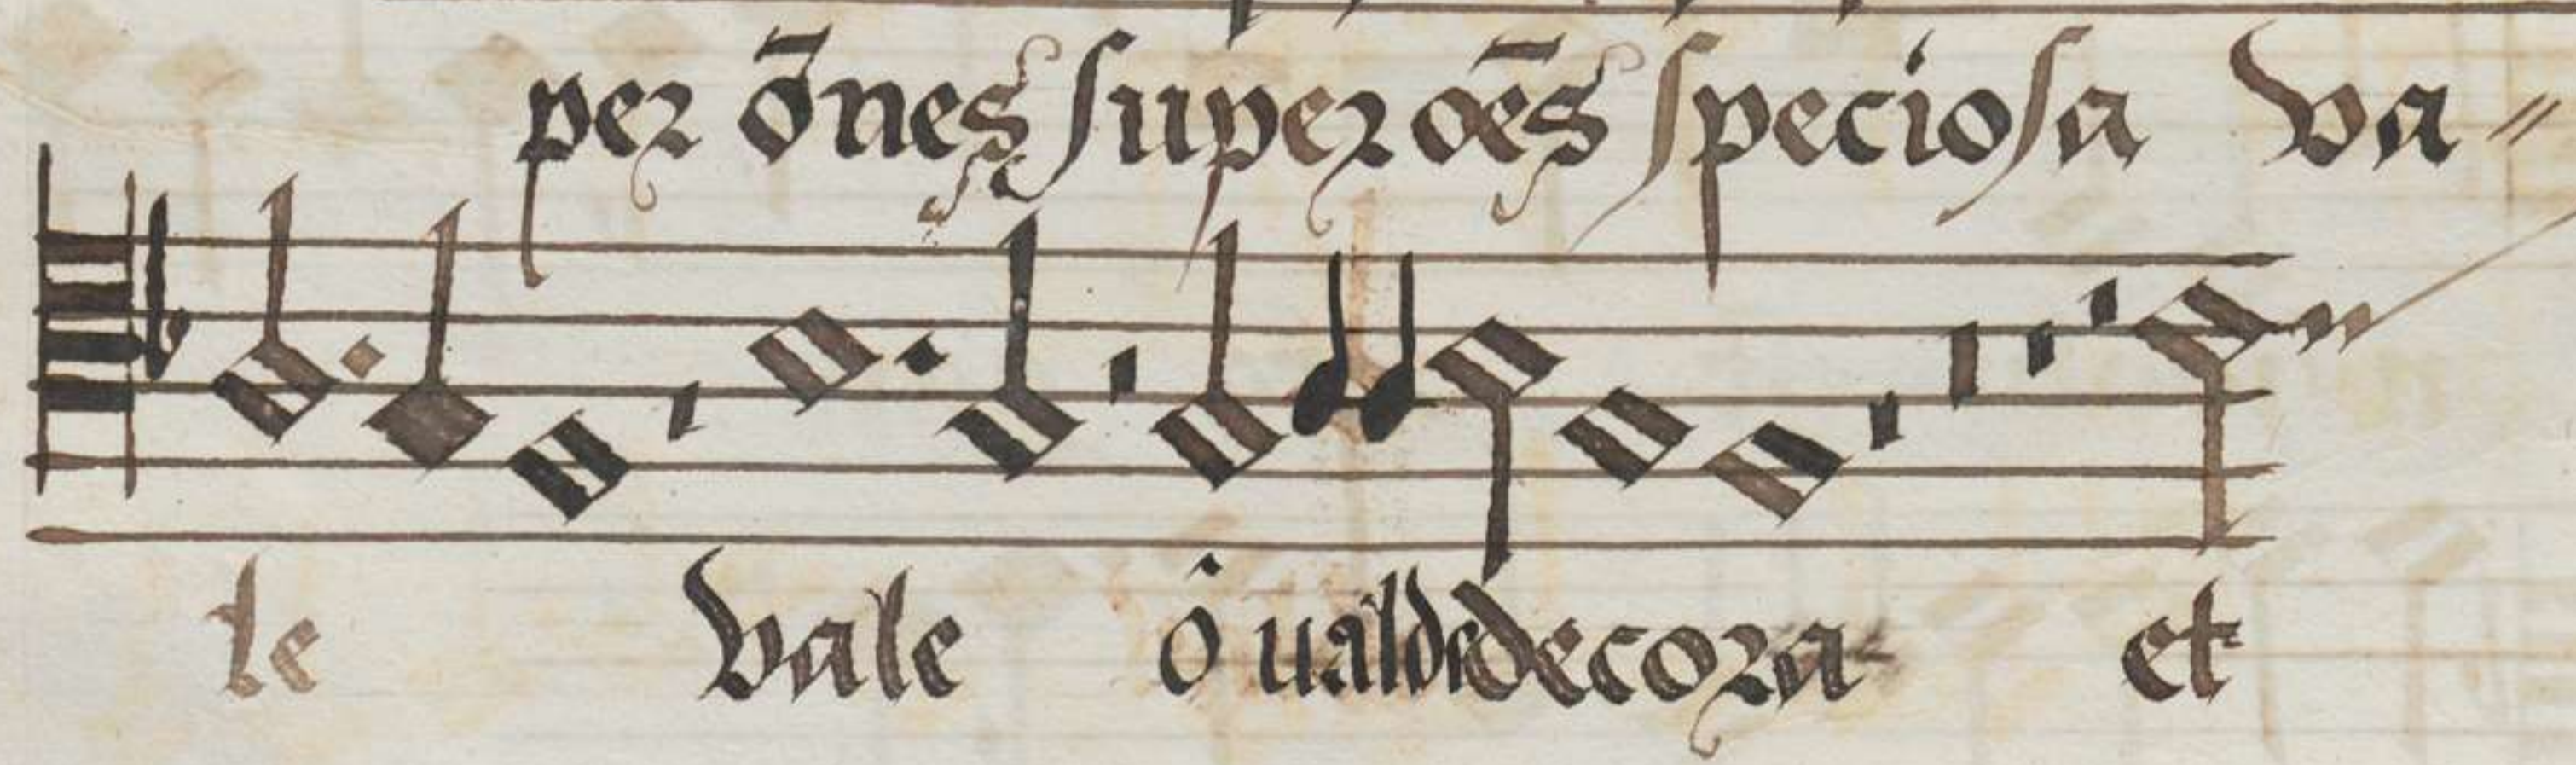 per ōnes super oēs speciosa va⸗
le vale ó ualde decora et